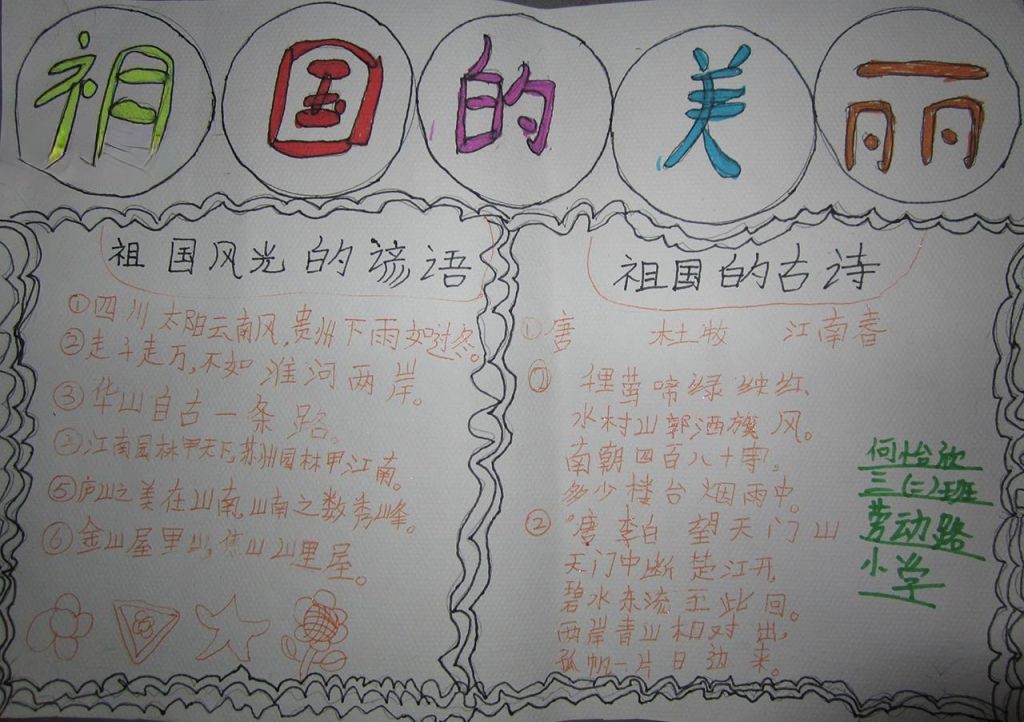 祖国的美丽
祖国风光的谚语
①四川太阳云南风,贵州下雨如过冬。
②走千走万,不如淮河两岸。
③华山自古一条路。
③江南园林甲天下,苏州园林甲江南。
⑤庐山之美在山南,山南之数秀峰。
⑥金山屋里山,焦山山里屋。
祖国的古诗
①唐 杜牧 江南春
① 莺啼绿映红
水村山郭酒旗风。
南朝四百八十寺。
多少楼台烟雨中。
②唐 李白 望天门山
天门中断楚江开
碧水东流至此回。
两岸青山相对出,
孤帆一片日边来。
何怡欣
三(二)班
劳动路
小学